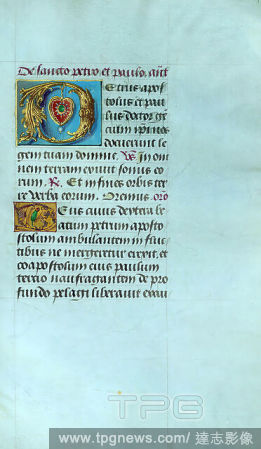 De sancto petro et paulo. ant
Petrus apos
tolus et pau
lus doctor gen
cium ipsi nos
docuerunt le
gem tuam domine. Vs. In om
nem terram exiuit sonus eo
rum. R. Et in fines orbis ter
re verba eorum. Oremus. oro
Deus cuius dextera be
atum petrum aposto
stolum ambulantem in fluc
tibus ne mergeretur erexit. et
coapostolum eius paulum
tercio naufragantem de pro
fundo pelagi liberauit exau
TPG
www.tpgnews.com/ 達志影像